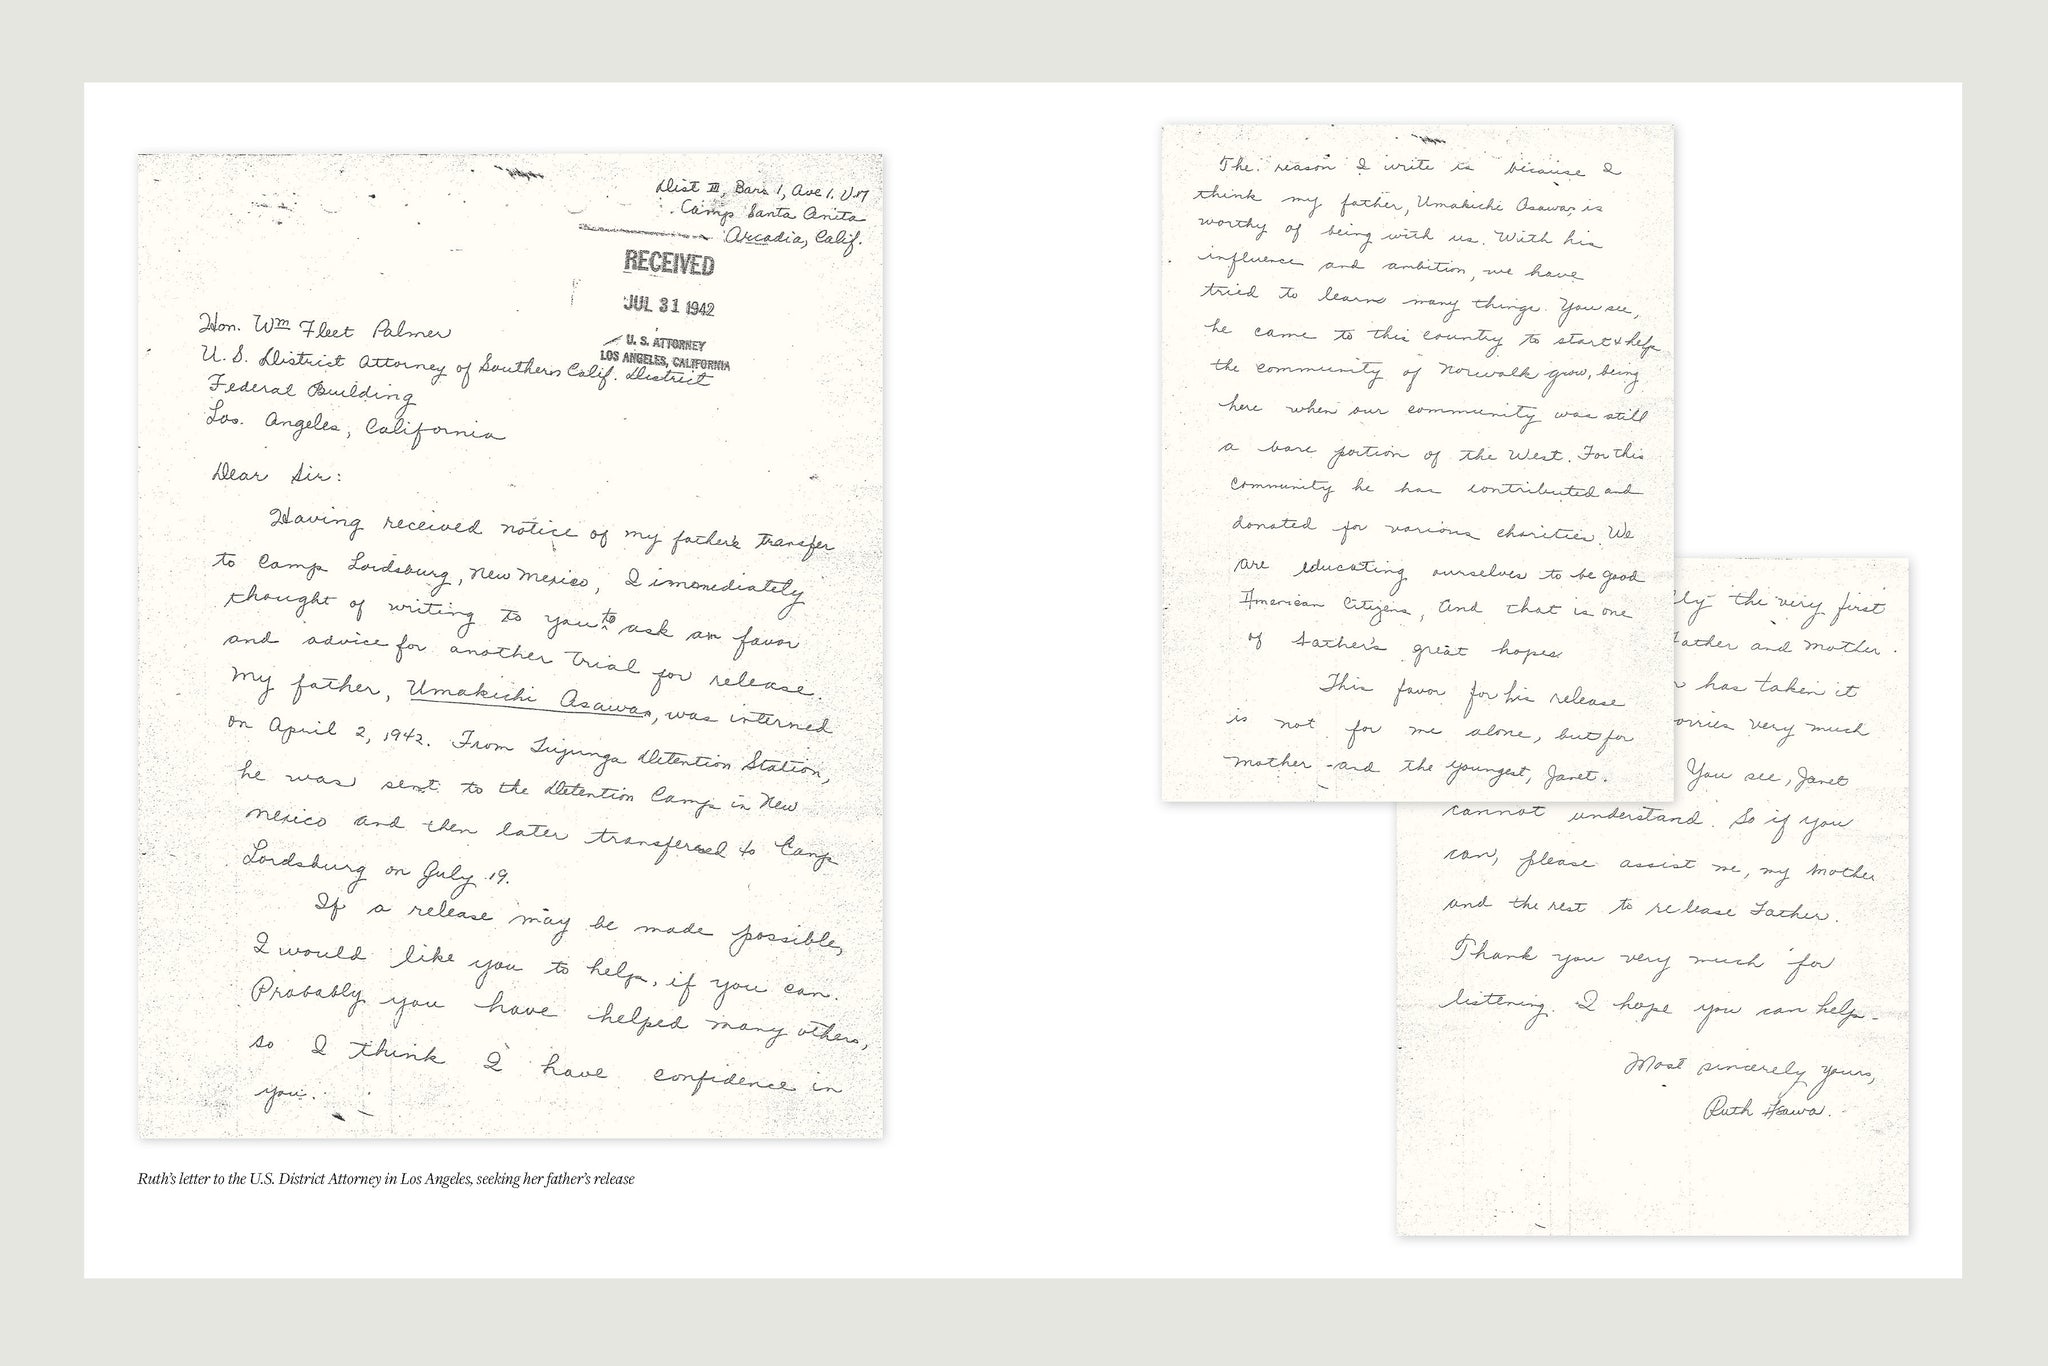 Dist III, Bars 1, Ave 1. U.M
Camp Santa Anita
Arcadia, Calif.
RECEIVED
JUL 31 1942
U. S. ATTORNEY
LOS ANGELES, CALIFORNIA
Hon. Wm Fleet Palmer
U. S. District Attorney of Southern Calif. District
Federal Building
Los. Angeles, California
Dear Sir:
Having received notice of my father's transfer
to Camp Lordsburg, New Mexico, I immediately
thought of writing to you to ask a favor
and advice for another trial for release.
My father, Umakichi Asawa, was interned
on April 2, 1942. From Tujunga Detention Station,
he was sent to the Detention Camp in New
Mexico and then later transfered to Camp
Lordsburg on July 19.
If a release may be made possible,
I would like you to help, if you can.
Probably you have helped many others,
so I think I have confidence in
you.
Ruth's letter to the U.S. District Attorney in Los Angeles, seeking her father's release
The reason I write is because I
think my father, Umakichi Asawa, is
worthy of being with us. With his
influence and ambition, we have
tried to learn many things. You see,
he came to this country to start & help
the community of Norwalk grow, being
here when our community was still
a bare portion of the West. For this
community he has contributed and
donated for various charities. We
are educating ourselves to be good
American Citizens, And that is one
of Father's great hopes.
This favor for his release
is not for me alone, but for
mother and the youngest, Janet.
the very first
Father and Mother.
has taken it
very much
You see, Janet
cannot understand. So if you
can, please assist me, my Mother
and the rest to release Father.
Thank you very much for
listening. I hope you can help-
Most sincerely yours,
Ruth Asawa.